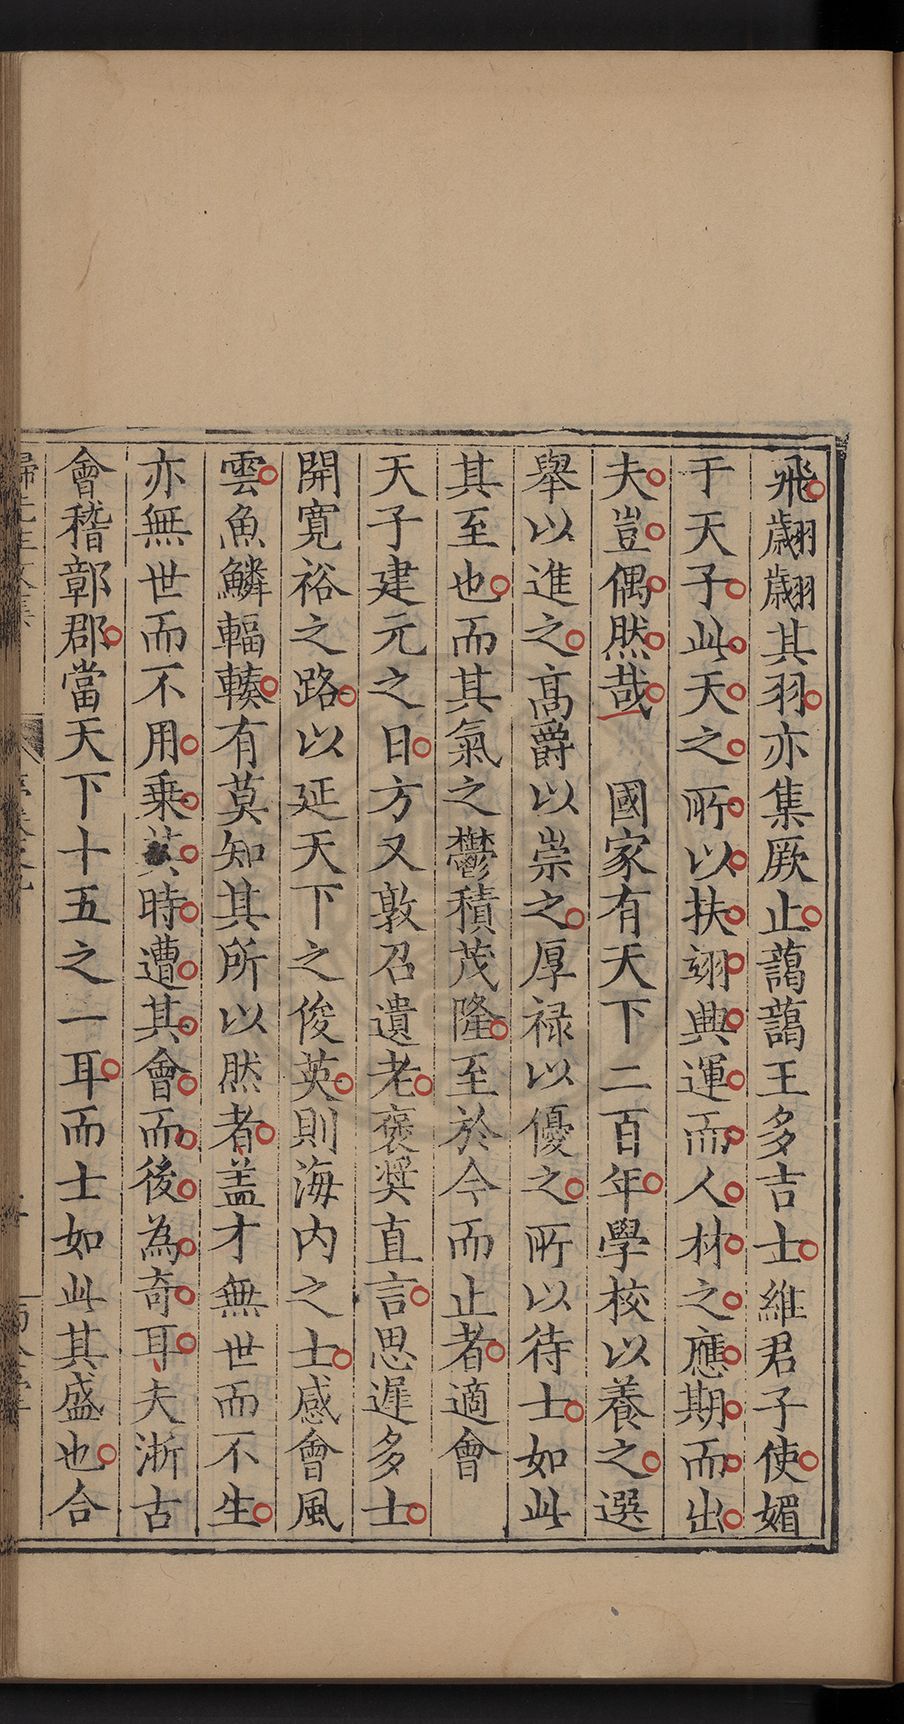 飛翽翽其羽亦集厥止藹藹王多吉士維君子使媚
于天子此天之所以扶翊興運而人材之應期而出
夫豈偶然哉　國家有天下二百年學校以養之選
舉以進之高爵以崇之厚禄以優之所以待士如此
其至也而其氣之鬱積茂隆至於今而止者適會
天子建元之日方又敦召遺老褒奨直言思遲多士
開寛裕之路以延天下之俊英則海内之士感會風
雲魚鱗輻輳有莫知其所以然者盖才無世而不生
亦無世而不用乗其時遭其會而後為奇耳夫浙古
會稽鄣郡當天下十五之一耳而士如此其盛也合